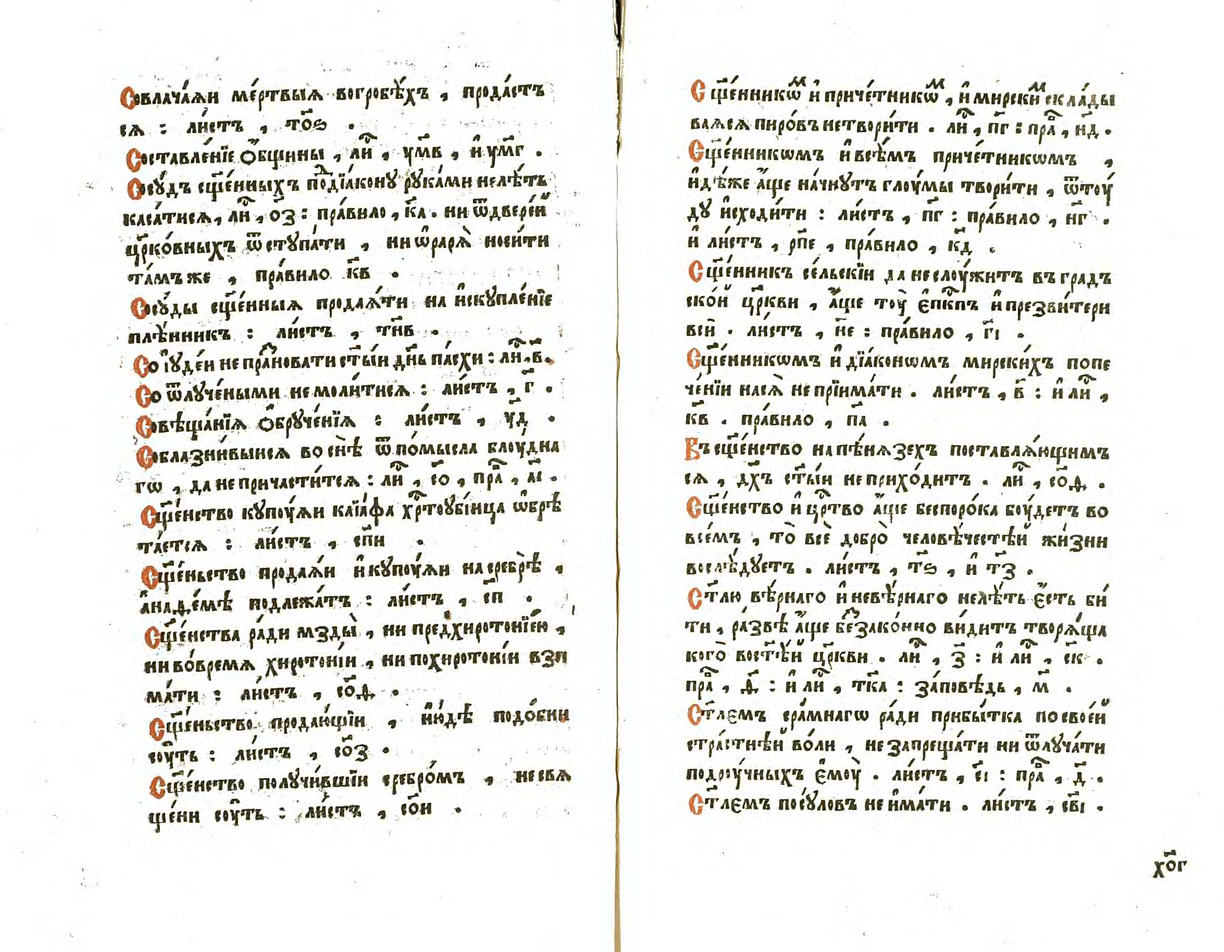 Совлача́ѧи ме́ртвыѧ вогробѣ́хъ , прода́стъ
сѧ : ли́стъ , то҃ѕ .
Составле́нїе ѻ҆́бщины , лиⷭ҇ , ум҃в , и҆ ум҃г .
Сосу́дъ сщ҃е́нныхъ под̾їа́кону рука́ми нелѣ́ть
каса́тисѧ, лиⷭ҇ , о҃з : пра́вило , к҃а . ни ѿдвере́й
цр҃ко́вныхъ ѿступа́ти , ни ѡ҆рарѧ̀ носи́ти
та́мъже , пра́вило к҃в .
Сосу́ды сщ҃е́нныѧ продаѧ́ти на и҆скупле́нїе
плѣ́нникъ : ли́стъ , тн҃в .
Со і҆уде́и не праⷥ҇новати ст҃ы́и дн҃ь па́схи : лиⷭ҇, в҃.
Со ѿлуче́ными не моли́тисѧ : ли́стъ , г҃ .
Совѣща́нїѧ ѻ҆бруче́нїѧ : ли́стъ , у҃д .
Соблазни́выисѧ во снѣ̀ ѿ по́мысла блоу́дна
гѡ , да не причасти́тсѧ : лиⷭ҇ , с҃о , праⷡ҇ , а҃і .
Сщ҃е́нство купоу́ѧи каїа́фа хрⷭ҇тоубі́ица ѡ҆брѣ
та́етсѧ : ли́стъ , сп҃и .
Сщ҃е́ньство продаѧ́и и҆ купоу́ѧи на сребрѣ̀ ,
а҆наѳ́емѣ подлежа́тъ : ли́стъ , с҃п .
Сщ҃е́нства ра́ди мзды̀ , ни пред̾хиротонї́ею ,
ни во́времѧ хиротоні́и , ни похиротоні́и взи
ма́ти : ли́стъ , со҃ѳ .
Сщ҃е́ньство продаю́щїи , и҆ю́дѣ подо́бни
соу́ть : ли́стъ , со҃з .
Сщ҃е́нство получи́вшїи сребро́мъ , не свѧ
ще́ни соу́ть : ли́стъ , со҃и .
Сщ҃е́нникѡⷨ и҆ приче́тникѡⷨ , и҆ мирскиⷨ склады
ваѧсѧ пиро́въ нетвори́ти . лиⷭ҇ , п҃г : праⷡ҇ , н҃д .
Сщ҃е́нникѡмъ и҆ всѣ́мъ приче́тникѡмъ ,
и҆дѣ́же а҆́ще начну́тъ глоу́мы твори́ти , ѿтоу́
ду и҆сходи́ти : ли́стъ , п҃г : пра́вило , н҃г .
и҆ ли́стъ , рп҃е , пра́вило , к҃д .
Сщ҃е́нникъ се́льскїи да не слоу́житъ въ град̾
ско́й цр҃кви , а҆́ще тоу̀ є҆пⷭ҇кпъ и҆ презви́тери
всѝ . ли́стъ , н҃е : пра́вило , г҃і .
Сщ҃е́нникѡмъ и҆ дїа́конѡмъ мирски́хъ попе
че́нїи насѧ̀ не прїима́ти . ли́стъ , в҃ : и҆ лиⷭ҇ ,
к҃в . пра́вило , п҃а .
Въ сщ҃е́нство на пѣ́нѧзехъ поставлѧ́ющимъ
сѧ , дх҃ъ ст҃ы́и не прихо́дитъ . лиⷭ҇ , со҃ѳ .
Сщ҃е́нство и҆ црⷭ҇тво а҆́ще беспоро́ка боу́детъ во
все́мъ , то̀ всѐ добро̀ человѣ́честѣй жи́зни
послѣ́дуетъ . ли́стъ , т҃ѕ , и҆ т҃з .
Ст҃лю вѣ́рнаго и҆ невѣ́рнаго нелѣ́ть є҆́сть би́
ти , ра́звѣ а҆́ще беззако́нно ви́дитъ творѧ́ща
кого̀ во ст҃ѣ́й цр҃кви . лиⷭ҇ , з҃ : и҆ лиⷭ҇ , с҃к .
праⷡ҇ , ѳ҃ : и҆ лиⷭ҇ , тк҃а : за́повѣдь , м҃ .
Ст҃лємъ сра́мнагѡ ра́ди прибы́тка по свое́й
стра́стнѣй во́ли , не запреща́ти ни ѿлуча́ти
подроу́чныхъ є҆моу̀ . ли́стъ , є҃і : праⷡ҇ , д҃ .
Ст҃лємъ посу́ловъ не и҆ма́ти . ли́стъ , св҃і .
хо҃г